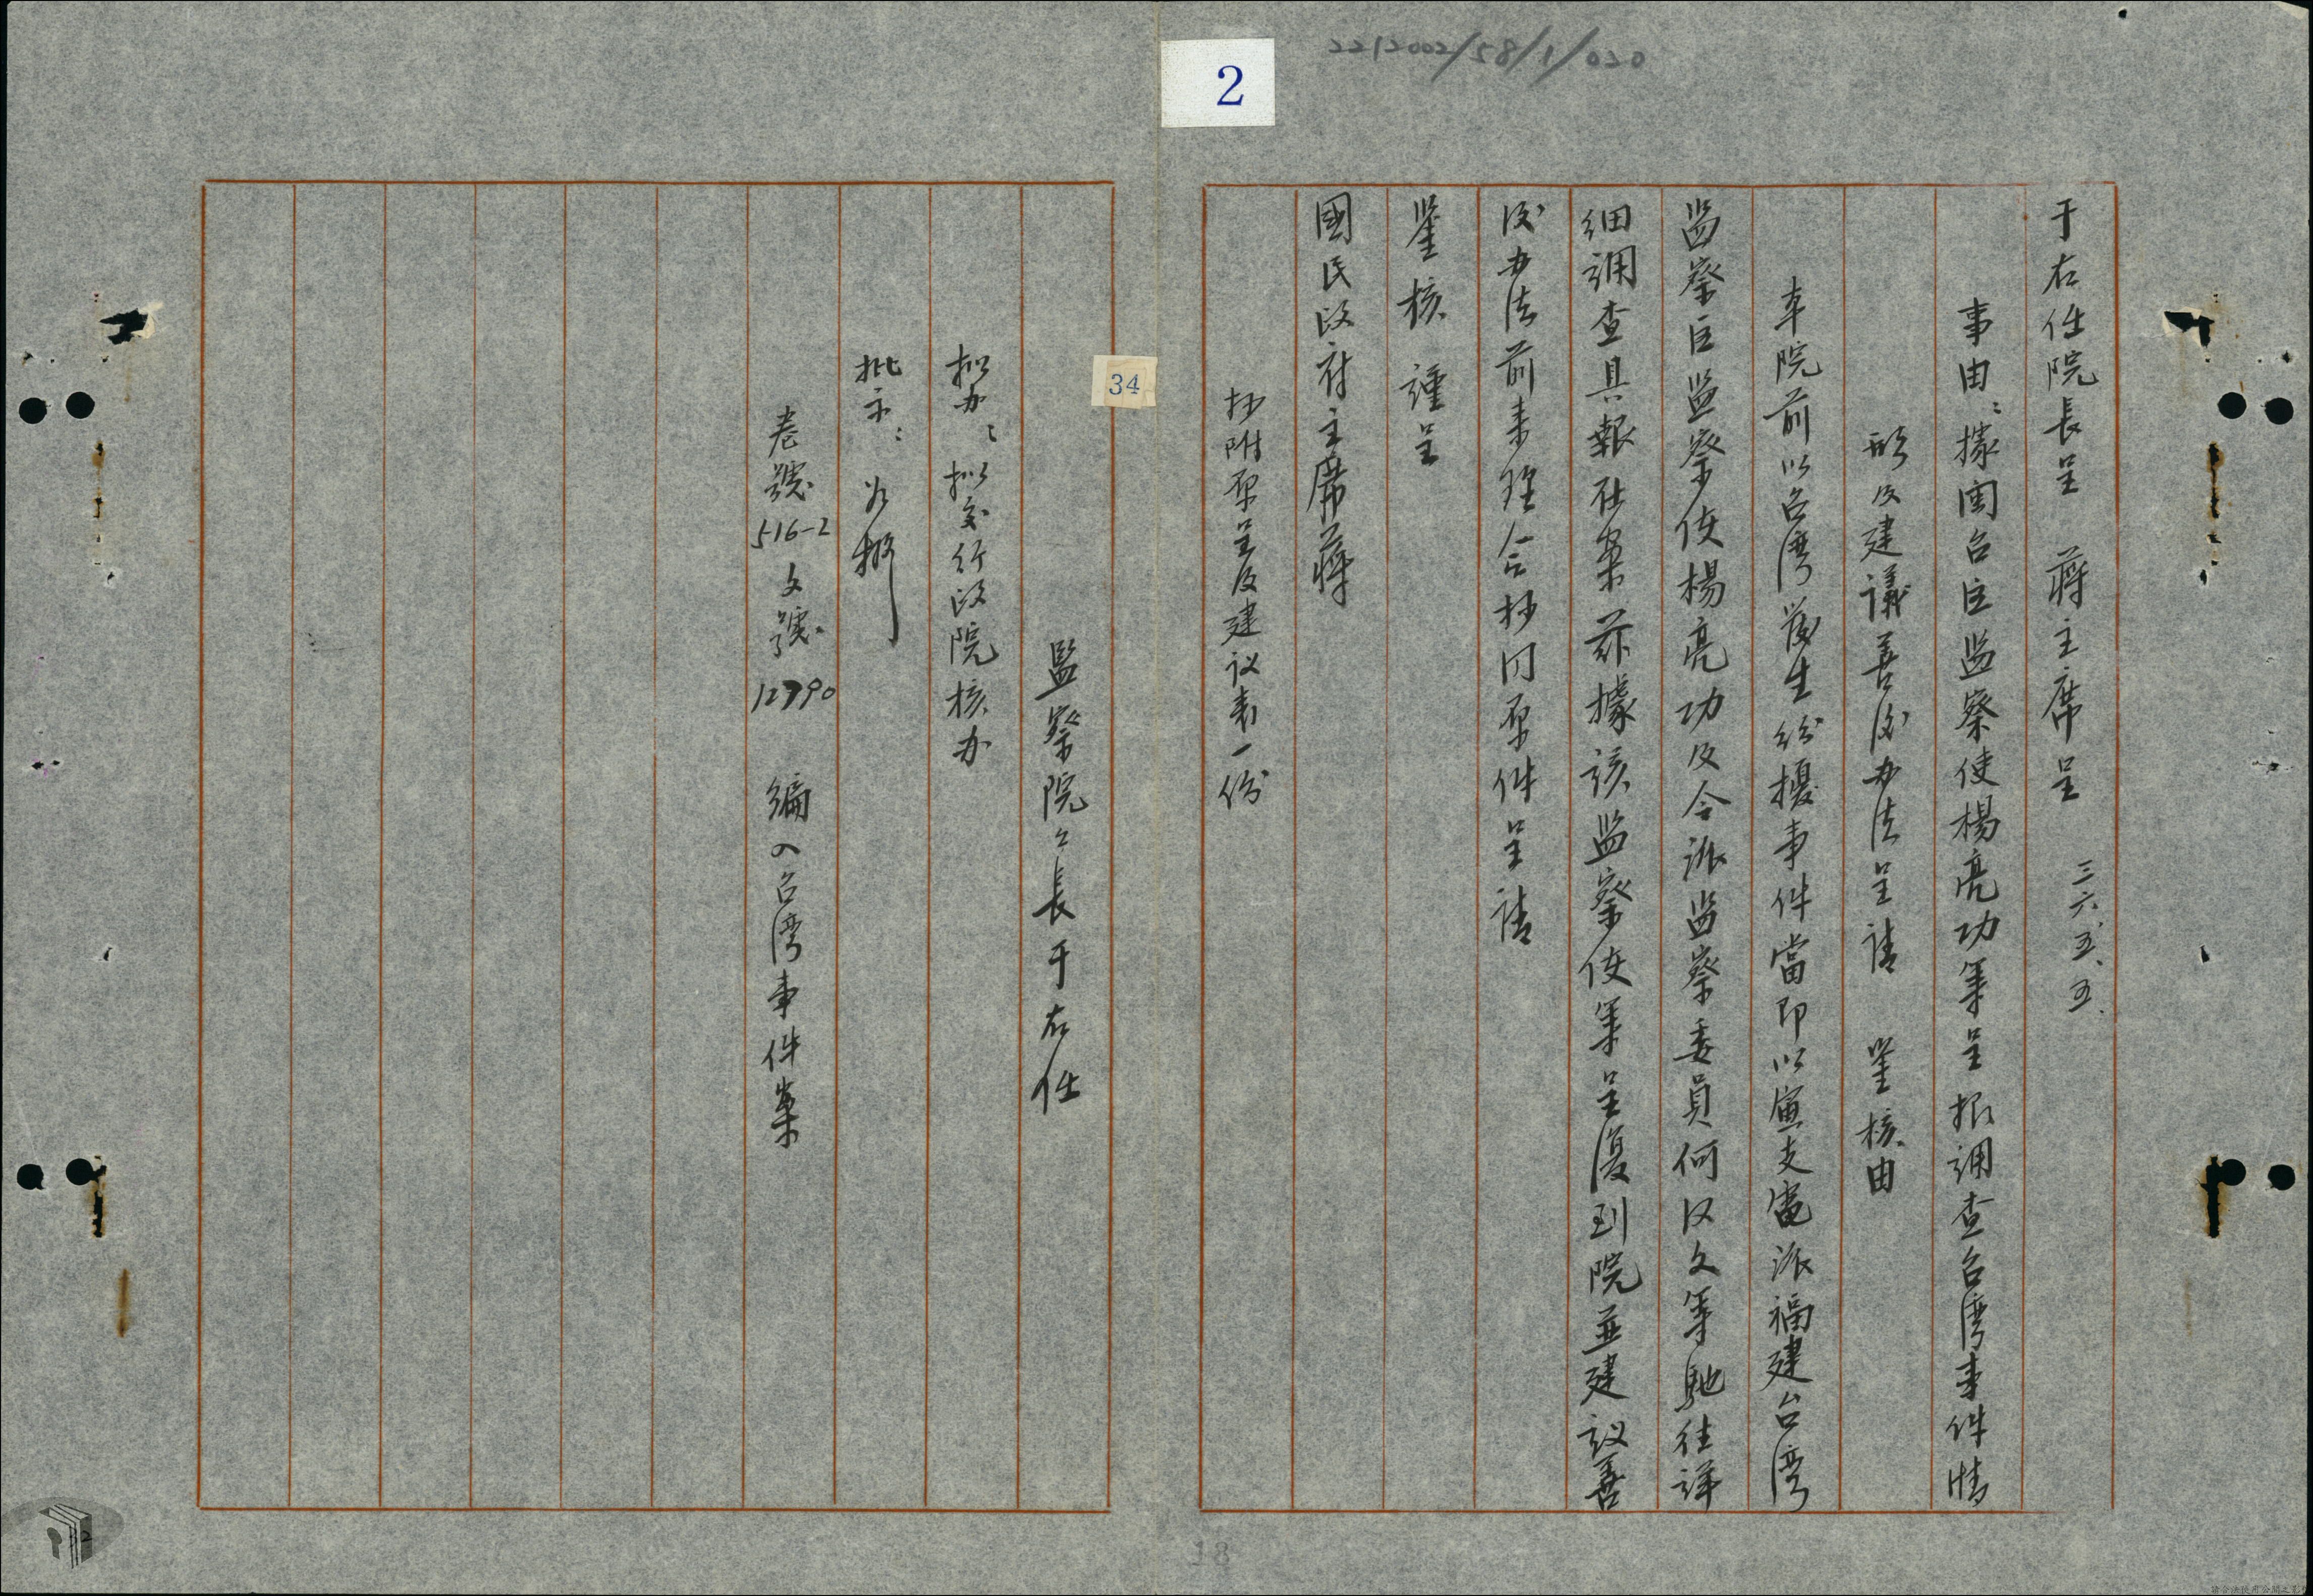 2212002/58/1/030
2
于右任院長呈　蔣主席呈　三六、五、五、
事由：據閩台區监察使楊亮功等呈报調查台湾事件情
形及建議善後办法呈請　鑒核由
本院前以台湾发生紛擾事件當即以寅支電派福建台湾
监察区监察使楊亮功及令派监察委員何汉文等馳往詳
細調查具報在案茲據該监察使等呈復到院並建议善
後办法前来理合抄同原件呈請
鑒核　謹呈
國民政府主席蔣
抄附原呈及建议書一份
34
監察院々長于右任
拟办：拟交行政院核办
批示：如拟
卷號516-2　文號12790　編入台湾事件案
18